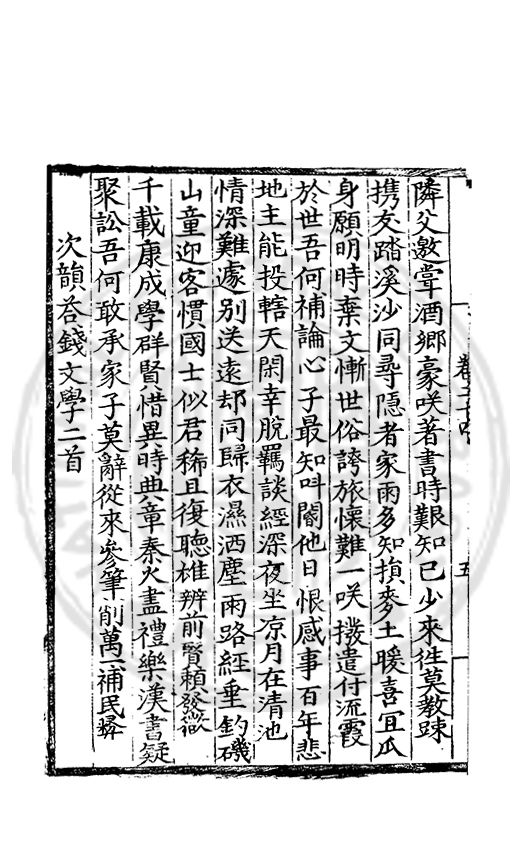 卷
五
隣父邀嘗酒鄉豪咲著書時艱知己少來徃莫教踈
携友踏溪沙同尋隠者家雨多知損麥土暖喜宜瓜
身願明時棄文慚世俗誇旅懷難一咲撥遣付流霞
於世吾何補論心子最知叫閽他日恨感事百年悲
地主能投轄天閑幸脫羈談經深夜坐凉月在清池
情深難遽別送遠却同歸衣濕洒塵雨路經垂釣磯
山童迎客慣國士似君稀且復聽雄辨前賢頼發微
千載康成學群賢惜異時典章秦火盡禮樂漢書疑
聚訟吾何敢承家子莫辭從來參筆削萬一補民彛
次韻荅錢文學二首